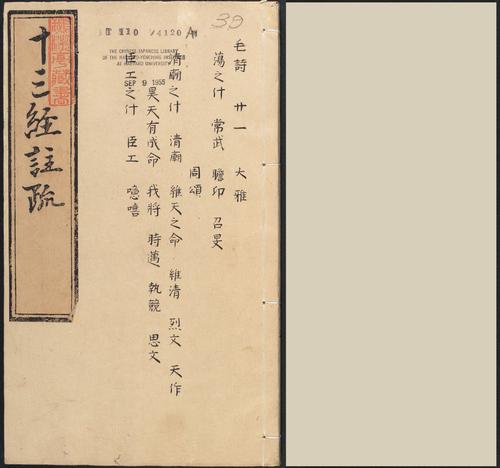 毛詩 廿一 大雅
蕩之什 常武 瞻卬 召旻
周頌
清廟之什 清廟 維天之命 維清 烈文 天作
昊天有成命 我將 時邁 執競 思文
臣工之什 臣工 噫嘻
十三經註疏
39
T 110 / 4120
THE CHINESE-JAPANESE LIBRARY
OF THE HARVARD-YENCHING INSTITUTE
AT HARVARD UNIVERSITY
SEP 9 1955